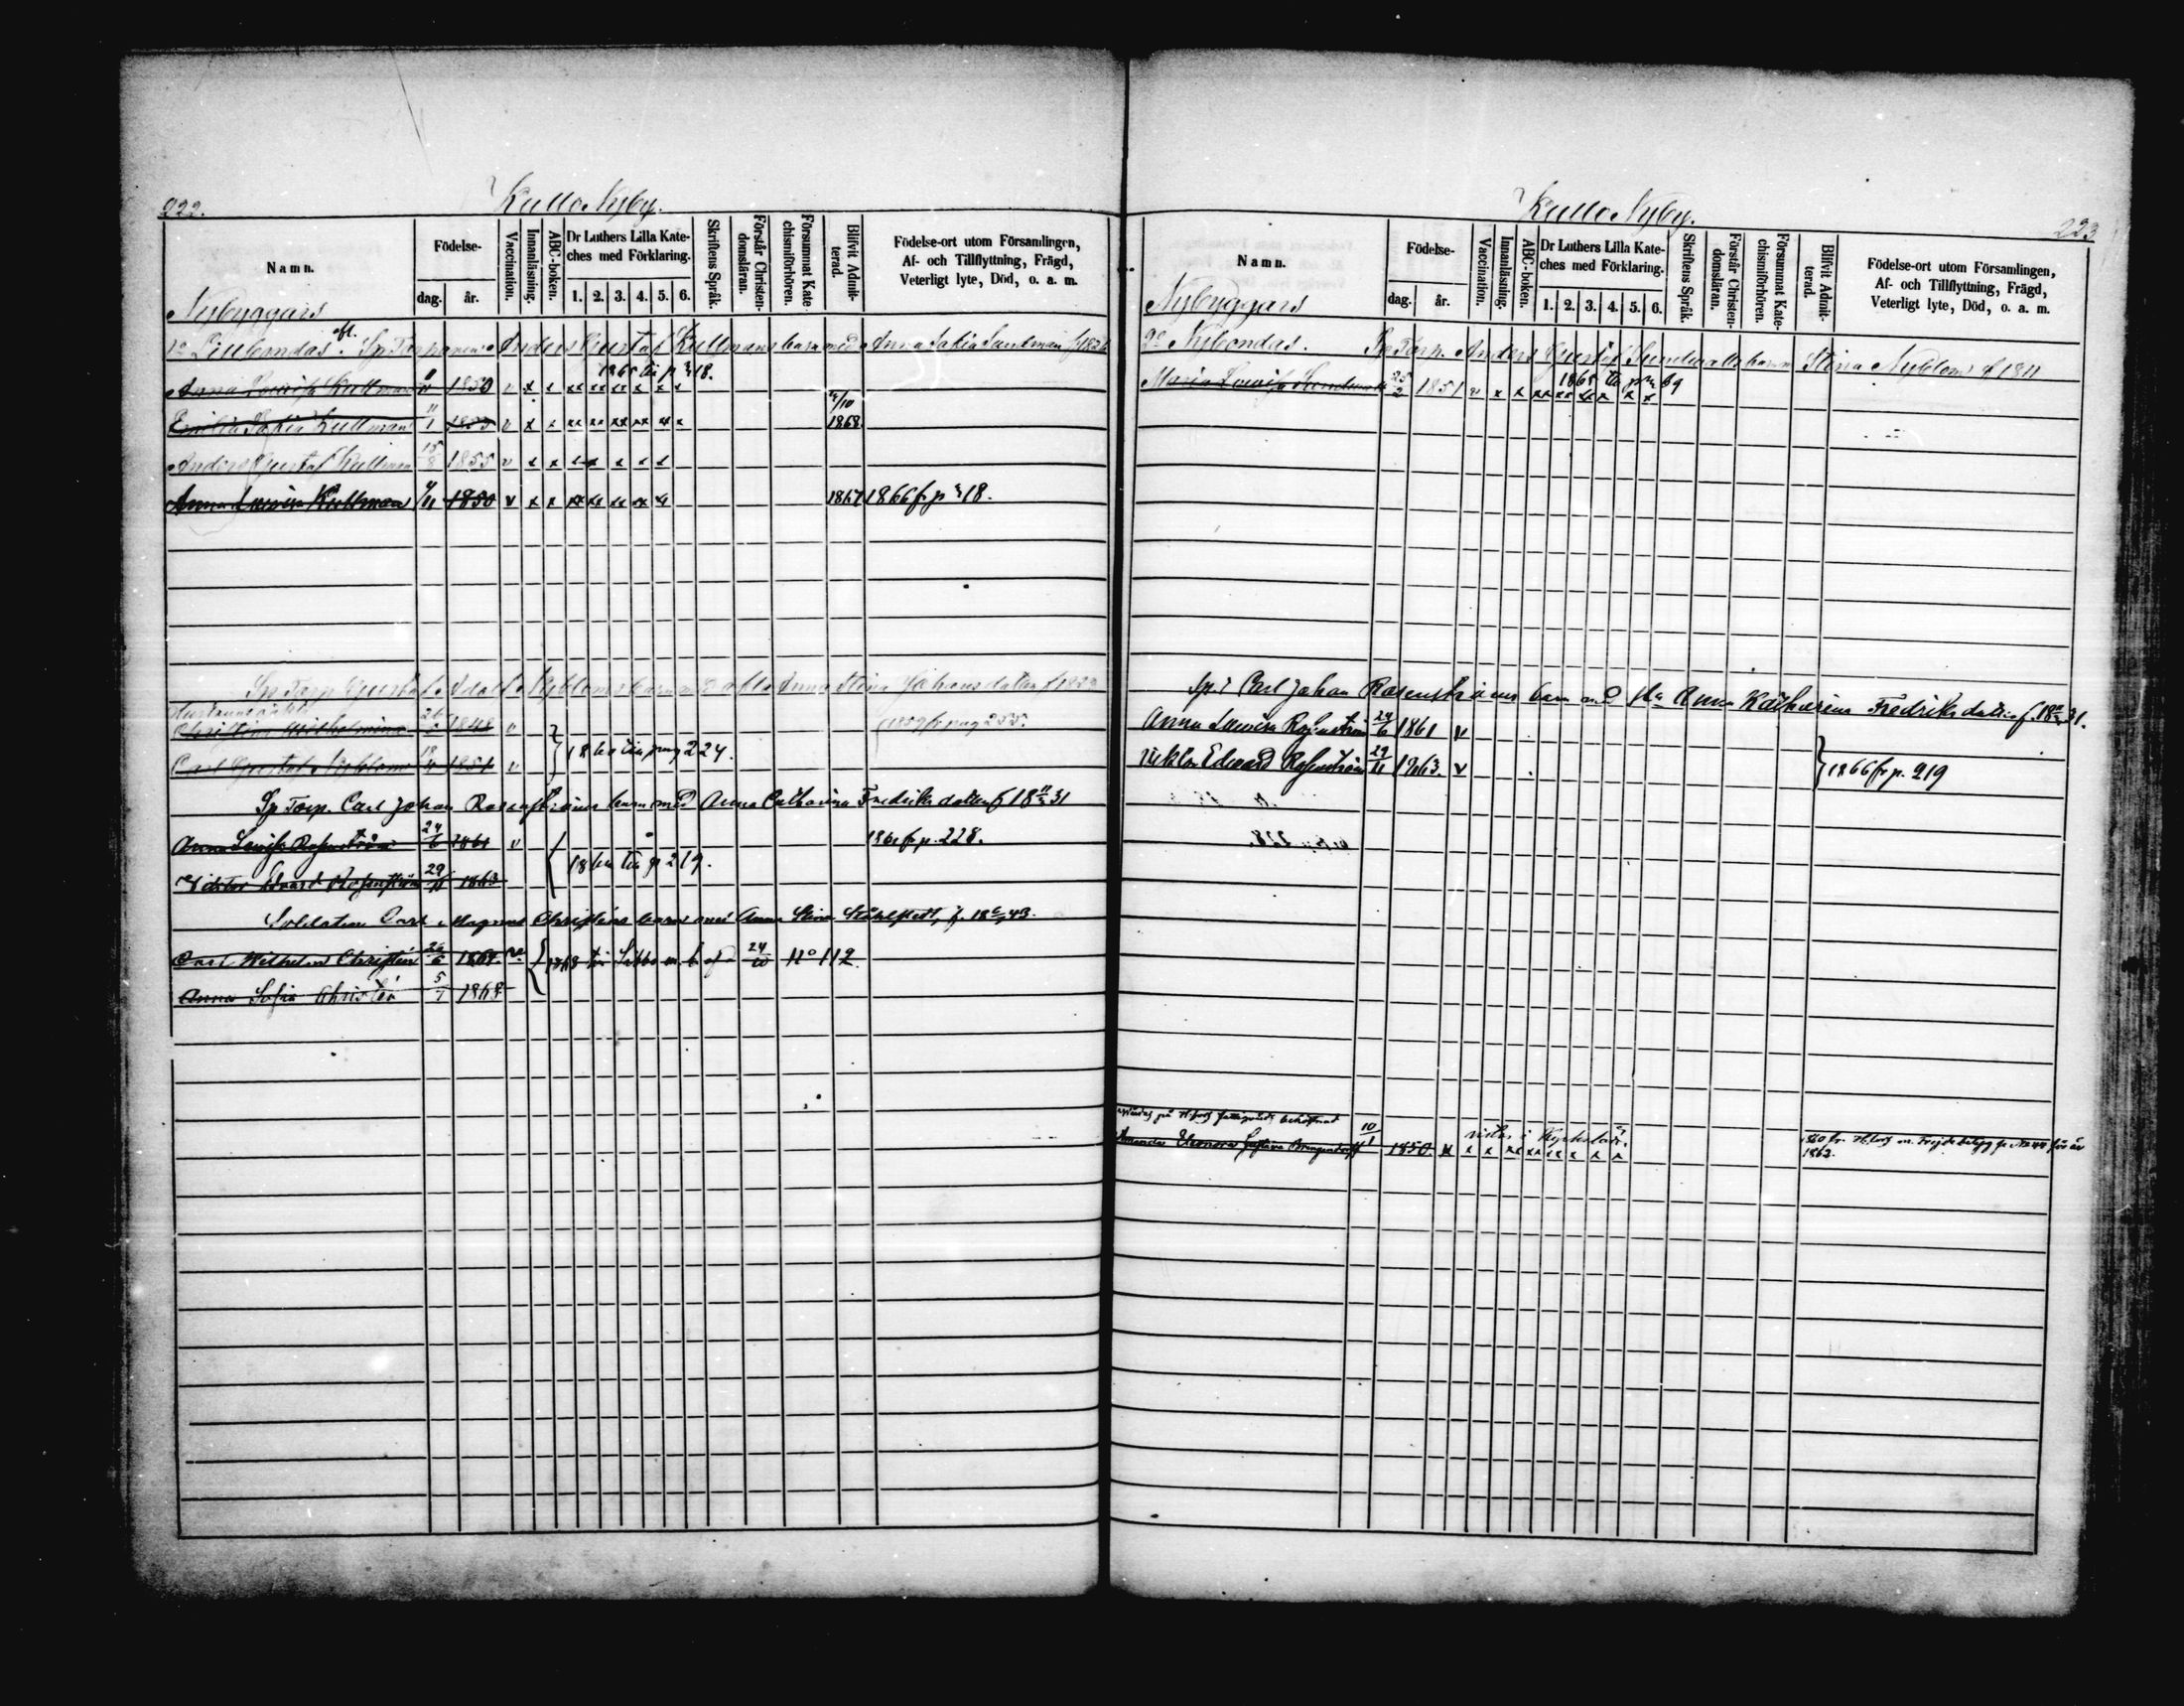 222.
Kullo Nyby.
Namn.
Födelse-
dag.
år.
Vaccination.
Innanläsning.
ABC-boken.
Dr Luthers Lilla Kate-
ches med Förklaring.
1. 2. 3. 4. 5. 6.
Skriftens Språk.
Förstår Christen-
domsläran.
Försummat Kate-
chismiförhören.
Blifvit Admit-
terad.
Födelse-ort utom Församlingen,
Af- och Tillflyttning, Frägd,
Veterligt lyte, Död, o. a. m.
Nybyggars
Anders Gustaf Kullmans barn med Anna Sofia Sandman f 1826
1865 till p 18.
Anna Lovisa Kullman 1850 v x x xx x x x x x
Emilia Sofia Kullman 11/1 1853 v x x xx xx xx xx x x 1868
Anders Gustaf Kullman 15/8 1855 v x x x x x x x
Anna Lovisa Kullman 1850 v x x xx xx xx xx x 1867 1866 fr p 18.
Sp Torp Gustaf Adolf Nybloms barn med Anna Stina Johansdotter
Christina Wilhelmina 1848 v 1859 fr pag 255.
Carl Gustaf Nyblom 18/4 1851 v till pag 224.
Sp Torp. Carl Johan Rosenströms barn med Anna Catharina Fredriksdotter f 18 31
Anna Lovisa Rosenström 24/6 1861 v fr p. 228.
till p 219.
Viktor Edvard Rosenström 29/11 1863
Soldaten Carl Magnus Christéns barn med Anna Stina Ståhlstedt, f. 18 43.
Carl Wilhelm Christén 26/6 1868 till Sibbo m. b. af 24/10 No 112
Anna Sofia Christén 5/7 1868
Kullo Nyby.
223
Namn.
Födelse-
dag.
år.
Vaccination.
Innanläsning.
ABC-boken.
Dr Luthers Lilla Kate-
ches med Förklaring.
1. 2. 3. 4. 5. 6.
Skriftens Språk.
Förstår Christen-
domsläran.
Försummat Kate-
chismiförhören.
Blifvit Admit-
terad.
Födelse-ort utom Församlingen,
Af- och Tillflyttning, Frägd,
Veterligt lyte, Död, o. a. m.
Nybyggars
2o Nybondas. Sp Torp. Anders Gustaf Sundvalls barn Stina Nyblom f 1811
1865 till pag 69
Maria Lovisa 25/2 1851 v x x xx xx x x x
Sp. T Carl Johan Rosenströms barn med Anna Katharina Fredriksdotter f. 18 31.
Anna Lovisa Rosenström 24/6 1861 v
Viktor Edvard Rosenström 29/11 1863. v 1866 fr p. 219
på
Amanda Eleonora Gustava 10/1 1850. x x x xx xx xx x x x 1860 fr. m. för år
1862.